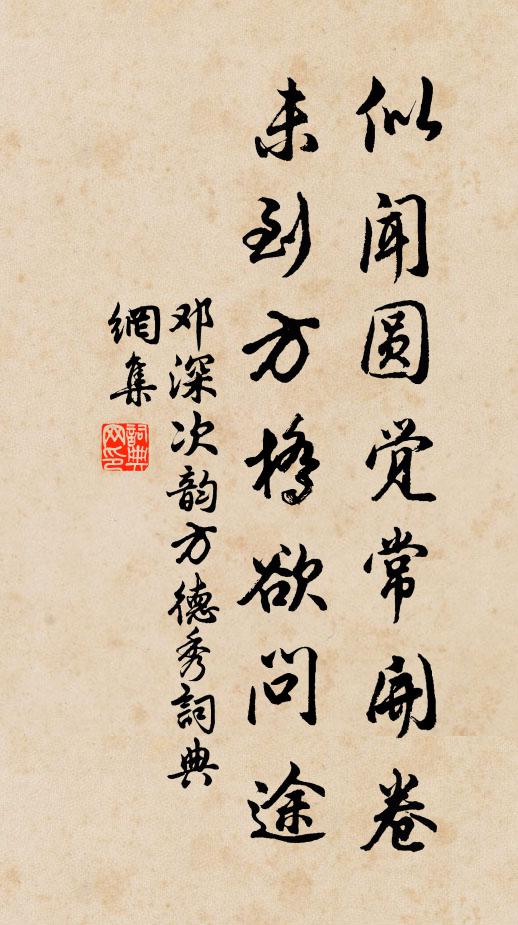 似闻圆觉常开卷
未到方桥欲问途
邓深次韵方德秀词典
網集
詞典
网印